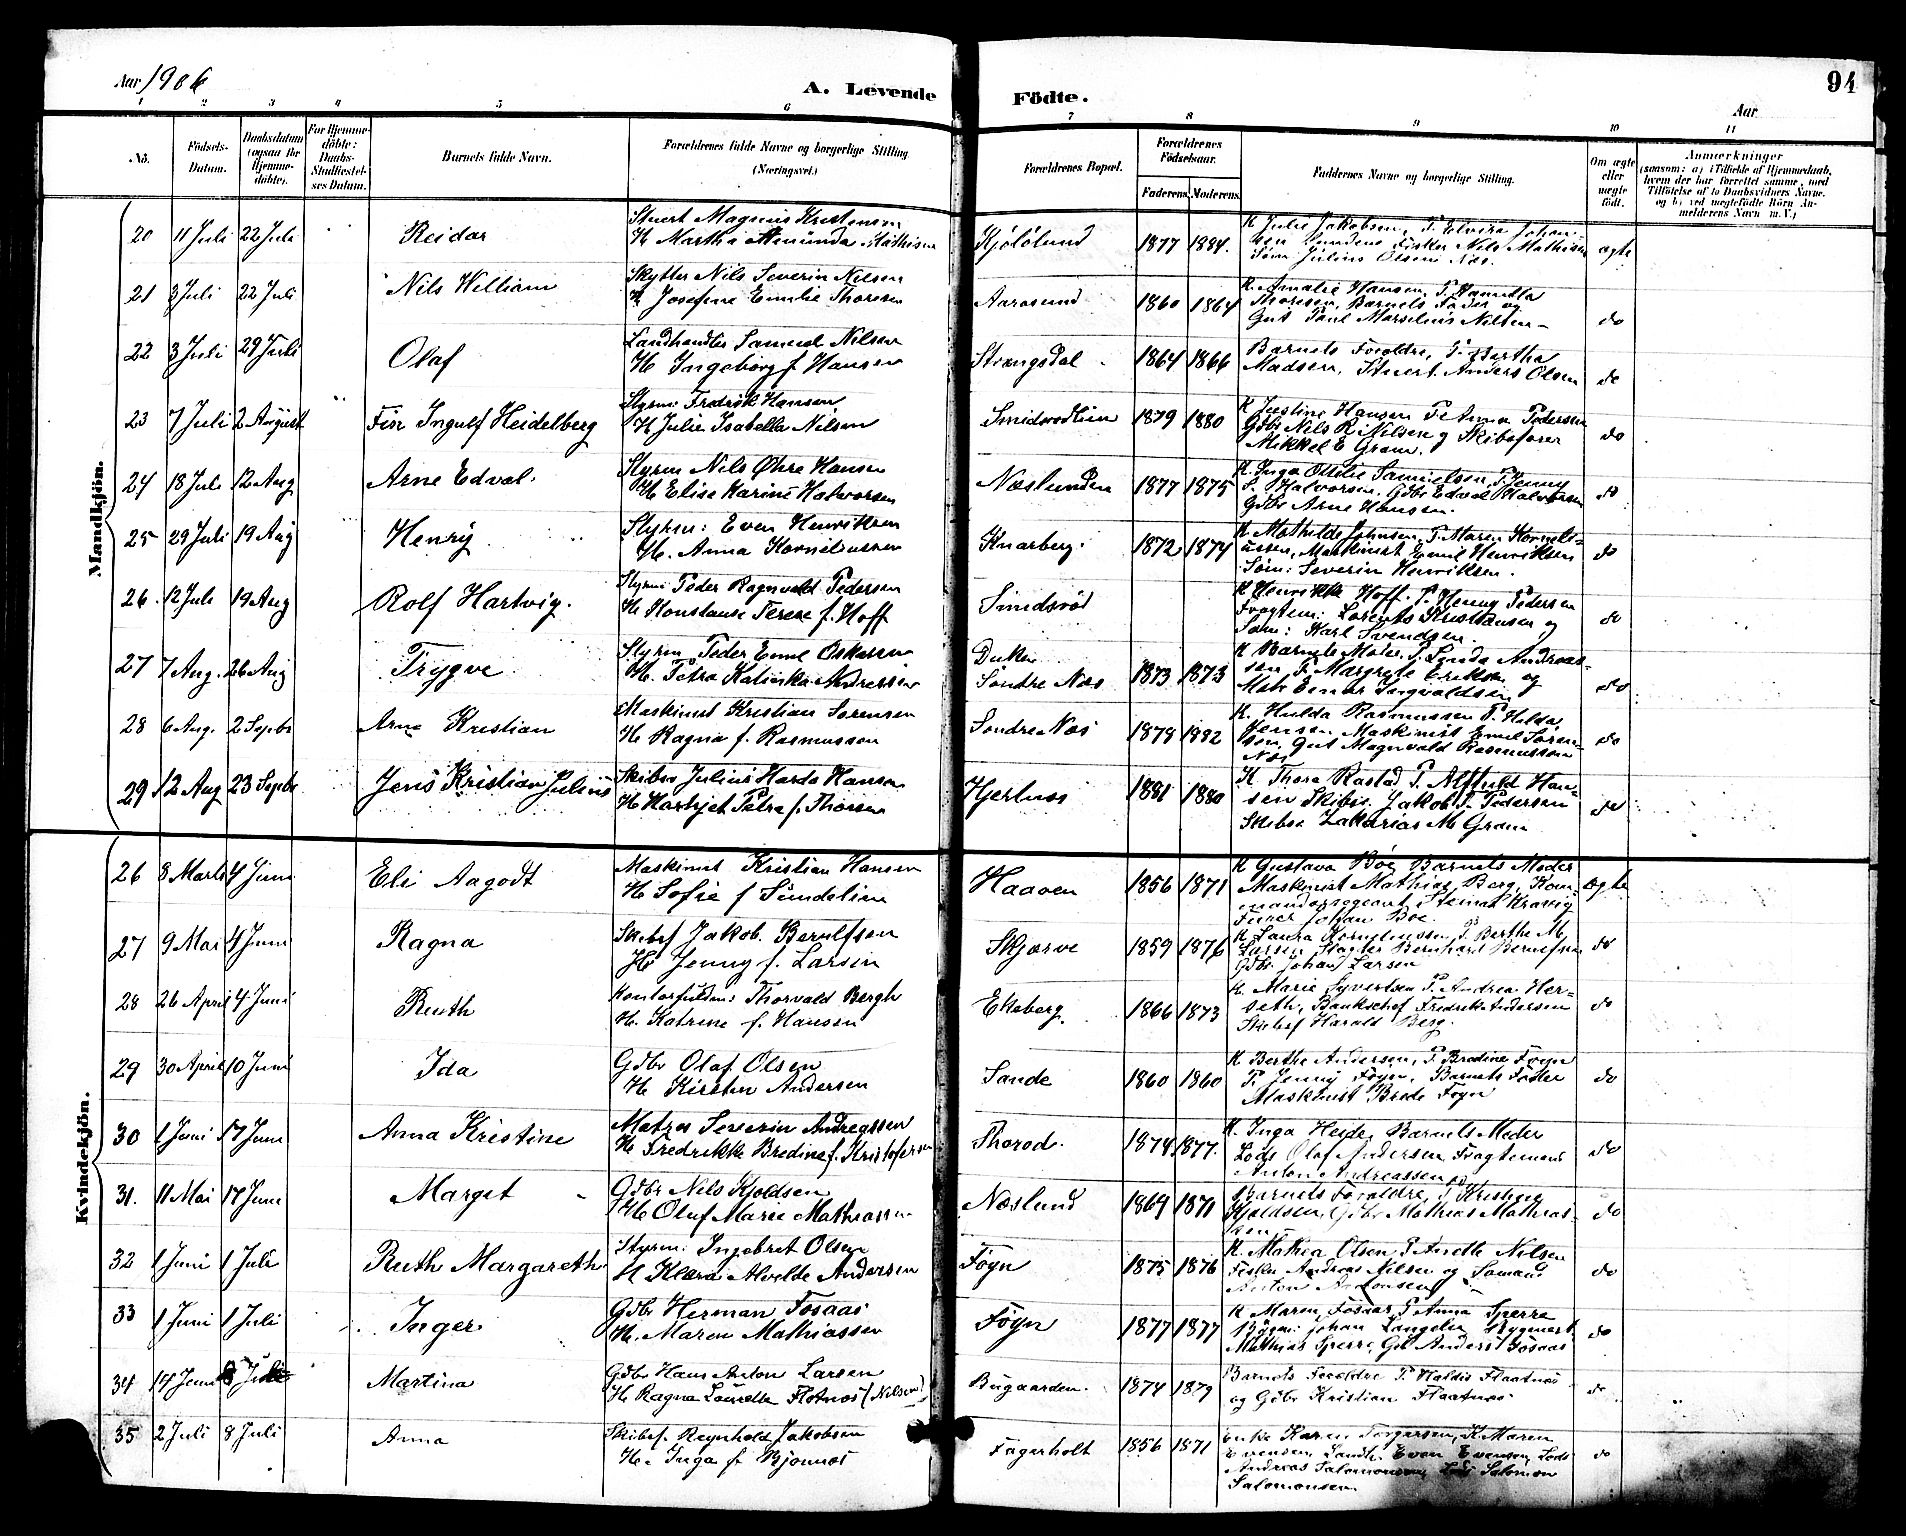 Aar 1906
A. Levende Födte.
94
Aar
1 2 3 4 5 6 7 8 9 10 11
No.
Födsels-Datum.
Daabsdatum (ogsaa for Hjemme-döbte).
For Hjemme-döbte: Daabs-Stadfæstel-ses Datum.
Barnets fulde Navn.
Forældrenes fulde Navne og borgerlige Stilling (Næringsvei.)
Forældrenes Bopæl.
Forældrenes Födselsaar.
Faderens. Moderens.
Faddernes Navne og borgerlige Stilling.
Om ægte eller uægte födt.
Anmærkninger
(saasom: a) i Tilfælde af Hjemmedaab, hvem der har forrettet samme, med Tilföielse af to Daabsvidners Navne, og b) ved uægtefödte Börn An-melderens Navn m. V.)
Mandkjön.
20 11 Juli 22 Juli Reidar
Stuert Magnus Kristensen
H Martha Amunda Mathisen
Kjølølund 1877 1884.
K Julie Jakobsen, P. Elvira Johan-
sen Fisker Nils Mathisen
Søm Julius Olsen Næs.
ægte
21 3 Juli 22 Juli Nils William
Skytter Nils Severin Nilsen
H Josefine Emilie Thoresen
Aarøsund 1860 1864
K Amalie Hansen, P.
Thoresen, Barnets Fader og
Gut Paul Marselius Nilsen
do
22 3 Juli 29 Juli Olaf
Landhandler Samuel Nilsen
H Ingeborg f. Hansen
Strengsdal 1864 1866
Barnets Foreldre, P. Bertha
Madsen, Stuert Anders Olsen
do
23 7 Juli 2 August Fin Ingulf Heidelberg
Styrm: Fredrik Hansen
H Julie Isabella Nilsen
Smidsrødlien 1879 1880
K Justine Hansen P Anna Pedersen
Gdbr Nils R Nilsen og Skibsfører
Mikkel E Gram.
do
24 18 Juli 12 Aug Arne Edval.
Styrm Nils Øhre Hansen
H Elise Karine Halvorsen
Næslunden 1877 1875
K. Inga Ottilie Samuelssen, P. Jenny
S. Halvorsen, Gdbr Edval Halvorsen
Gdbr Arne Hanssen.
do
25 29 Juli 19 Aug Henry
Styrm: Even Henriksen
H. Anna Korneliussen
Knarberg. 1872 1874
K. Mathilde Johnsen, P. Maren Korneli-
ussen, Maskinist Emil Henriksen
Søm: Severin Henriksen.
do
26. 12 Juli 19 Aug Rolf Hartvig.
Styrm Peder Ragnvald Pedersen
H Konstanse Terese f. Hoff
Smidsrød
K Henrikke Hoff. P. Henny Pedersen
Fragtem: Lorents Kristiansen og
Søm: Karl Svendsen.
do
27 7 Aug. 26 Aug Trygve
Styrm Peder Emil Oskarsen
H. Petra Kalinka Andressen
Søndre Næs 1873 1873
K Barnets Moder, P. Andreas-
sen P. Margrete Eriksen og
Matr Einar Ingvaldsen
do
28 6 Aug. 2 Septbr Arne Kristian
Maskinist Kristian Sørensen
H Ragna f. Rasmussen
Søndre Næs 1878 1882
K. Hulda Rasmussen P. Hilda
Jensen, Maskinist Emil Søren-
sen, Gut Magnvald Rasmussen
Næs
do
29 12 Aug 23 Septbr Jens Kristian Julius
Skibsf Julius Marda Hansen
H Hartyet Petra f. Thorsen
Hjertnes 1881 1880
K Thora Rastad P. Alfhild Han-
sen Skibsf. Jakob P. Pedersen
Skibsf Zakarias M Gram
do
Kvindekjön.
26 8 Marts 4 Juni Eli Aagodt
Maskinist Kristian Hansen
H Sofie f Sundelin
Haaven 1856 1871
K Gustava Bøe Barnets Moder
Maskinist Mathias Berg, Kom-
mandersergeant Steinar Kravig
Furer Johan Boe.
ægte
27 9 Mai 4 Juni Ragna
Skibsf Jakob. Berulfsen
H Jenny f. Larsen
Skjærve 1859 1876
K Laura Korneliussen, P. Berthe M.
Larsen, Bernhard Berulfsen
Gdbr. Johan Larsen
do
28 26 April 4 Juni Ruth
Kontorfuldm: Thorvald Bergh
H. Katrine f. Hansen
Ekeberg. 1866 1873
K. Marie Syvertsen P. Andrea Her-
seth, Bankchef Fredrik Andersen
Skibsf Harald Berg.
do
29 30 April 10 Juni Ida
Gdbr Olaf Olsen
H Kirsten Andersen
Sande 1860 1860
K Berthe Andersen, P. Bredine Foyn
P. Jenny Føyn, Barnets Fader
Maskinist Brede Foyn
do
30 1 Juni 17 Juni Anna Kristine
Matros Severin Andreassen
H Fredrikke Bredine f. Kristofersen
Thorød. 1874 1877.
K. Inga Heide, Barnets Moder
Lods Olaf Andersen, Fragtemand
Anton Andreassen
do
31. 11 Mai 17 Juni Margit
Gdbr Nils Kjøldsen
H Oluf Marie Mathiassen
Næslund 1869 1871
Barnets Foreldre, P Kristine
Kjøldsen, Gdbr Mathias Mathias-
sen
do
32 1 Juni 1 Juli Ruth Margareth
Styrm: Ingebret Olsen
H Klara Alvilde Andersen
Føyn 1875 1876
K. Mathea Olsen P Anette Nilsen
Fisker Andreas Nilsen og Sømand
Anton Antonsen
do
33 1 Juni 1 Juli Inger
Gdbr Herman Fosaas
H. Maren Mathiassen
Føyn 1877 1877
K Maren Fosaas, P Anna Sperre
Johan Langelin Bygmest
Mathias Sperre, Gdb Anders Fosaas
do
34 14 Juni 8 Juli Martina
Gdbr Hans Anton Larsen
H Ragna Laurette Flotnæs (Nilsen)
Bugaarden. 1874 1879
Barnets Foreldre P Haldis Flaatnæs
og Gdbr Kristian Flaatnæs
do
35 2 Juli 8 Juli Anna
Skibsf. Reynhold Jakobsen
H. Inga f. Bjønnes
Fagerholt 1856 1871
Enke Karen Torgersen, K. Maren
Evensen, Landh. Evan Evensen, Lods
Andreas Salomonsen, Lods Salomon
Salomonsen
do